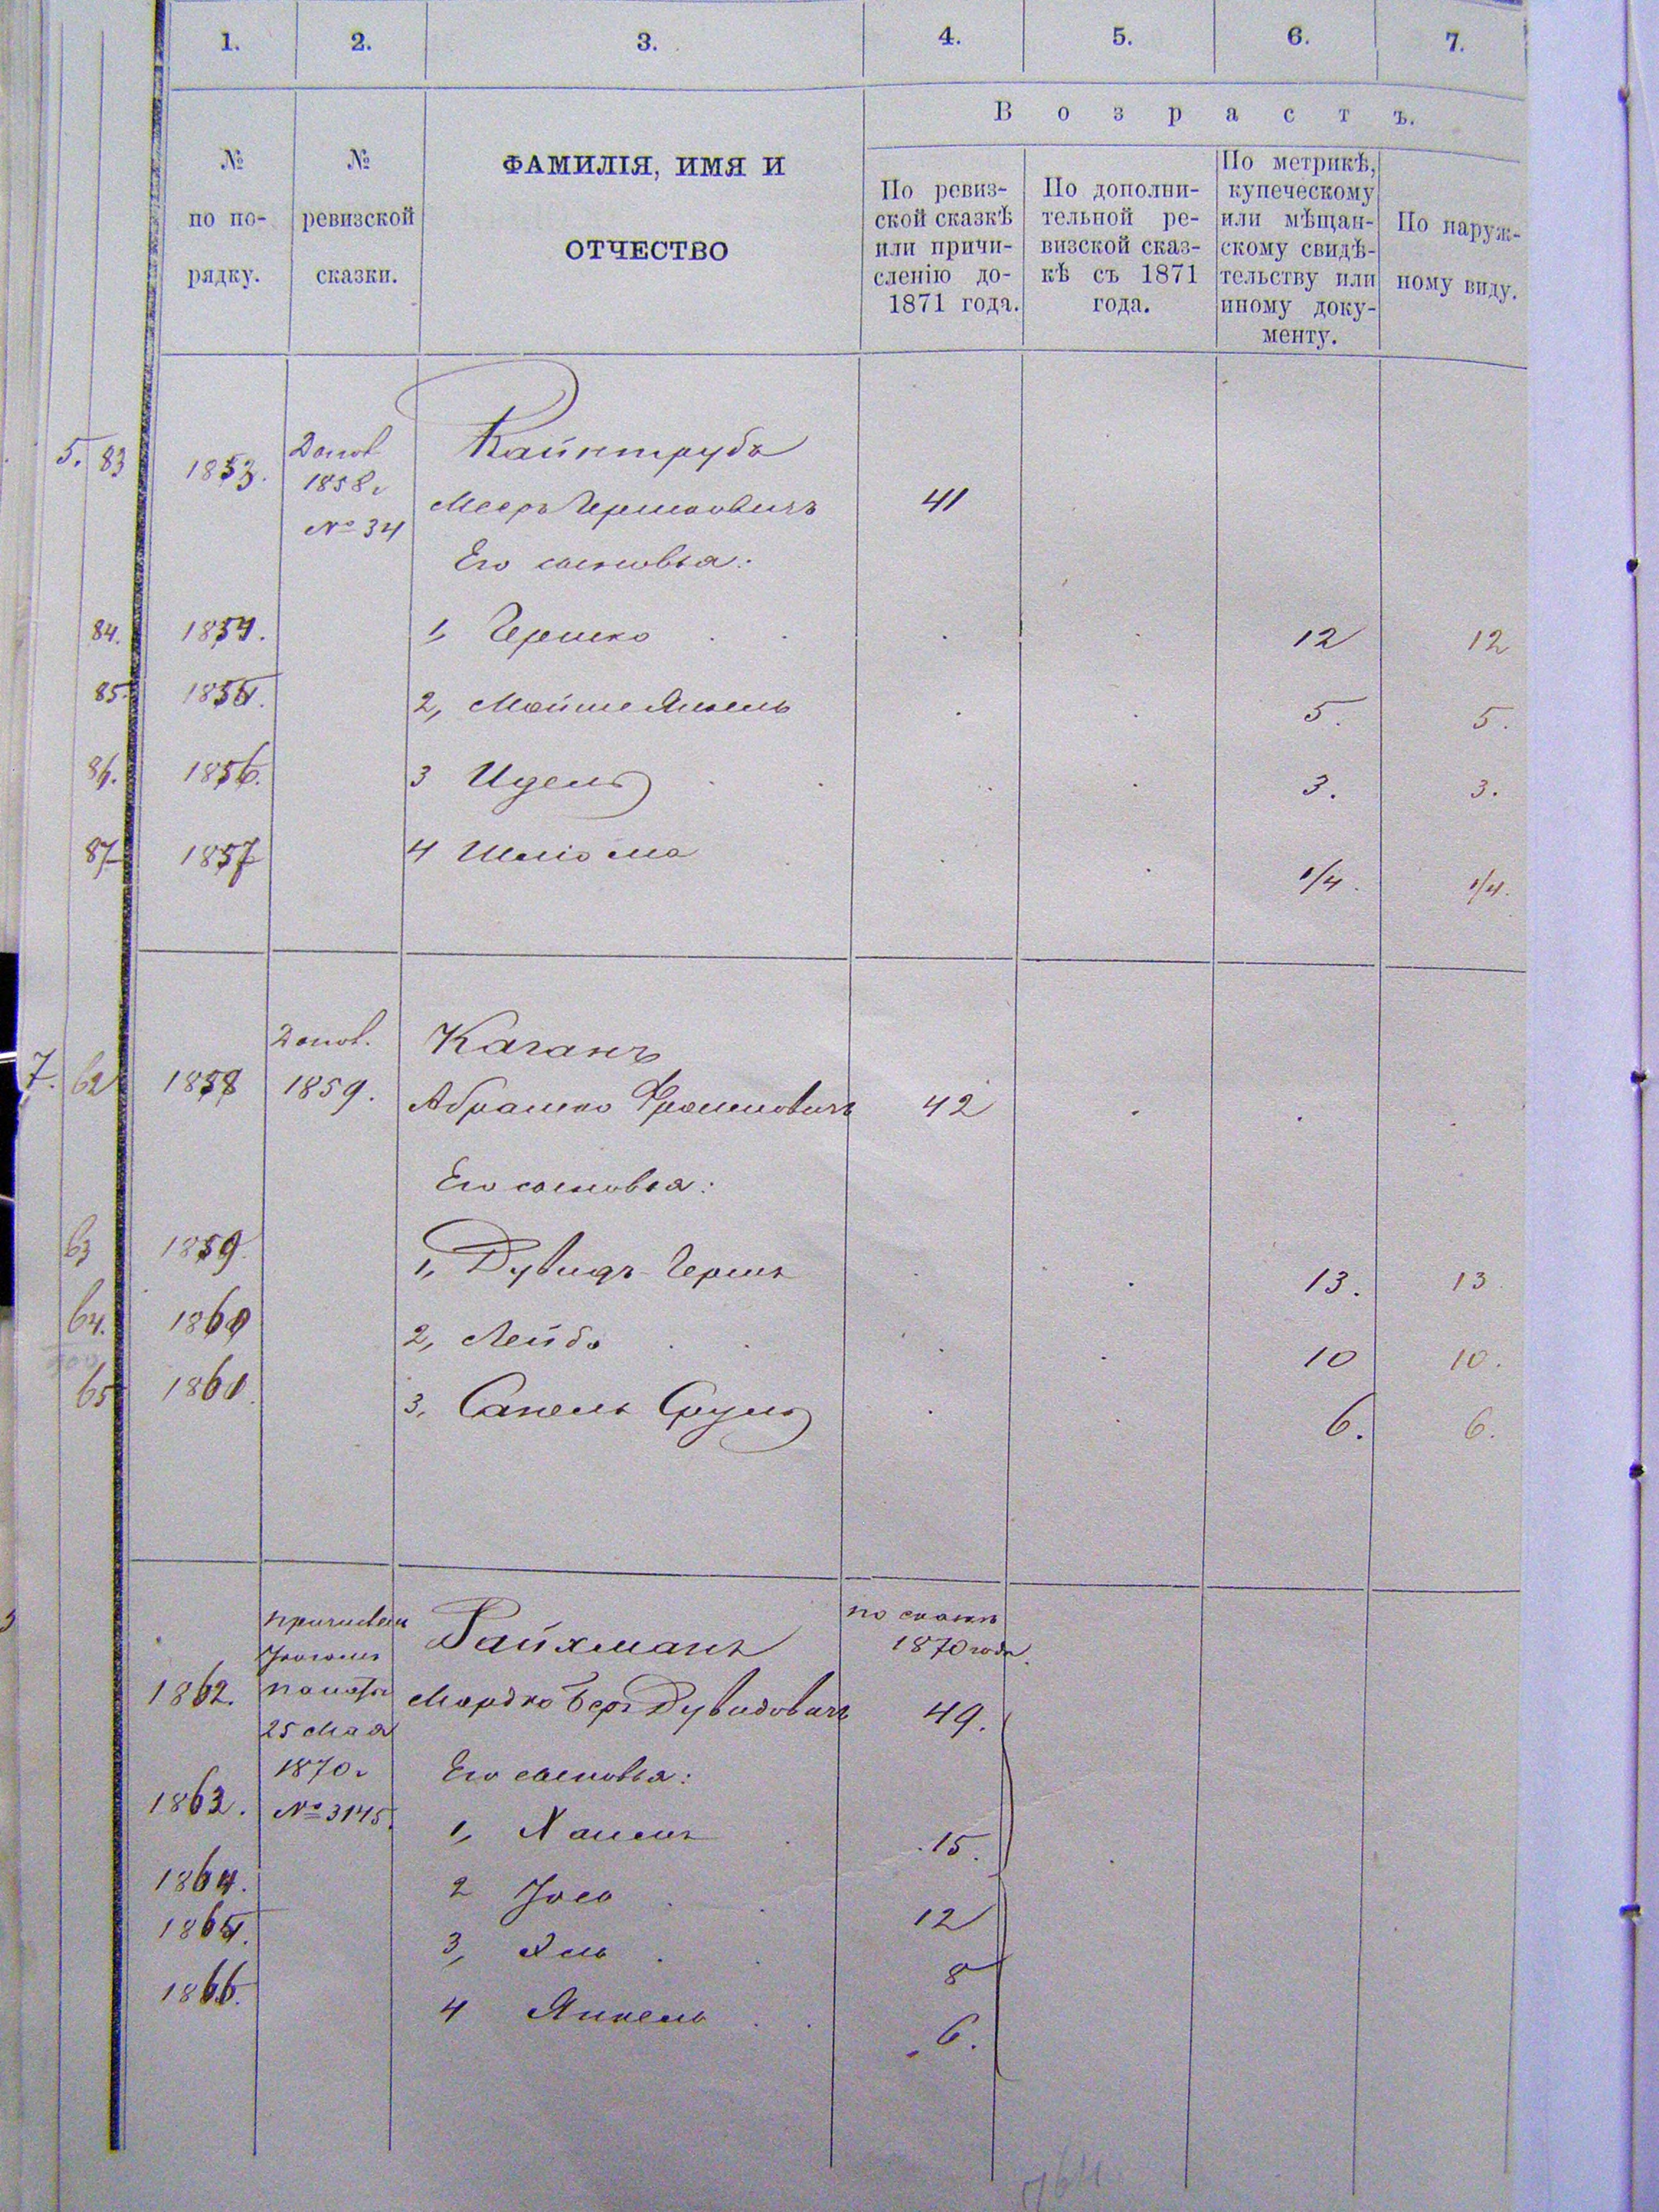 1. 2. 3. 4. 5. 6. 7.
Возрастъ.
№ по порядку.
№ ревизской сказки.
ФАМИЛІЯ, ИМЯ И
ОТЧЕСТВО
По ревиз-
ской сказкѣ
или причи-
сленію до-
1871 года.
По дополни-
тельной ре-
визской сказ-
кѣ съ 1871
года.
По метрикѣ,
купеческому
или мѣщан-
скому свидѣ-
тельству или
иному доку-
менту.
По наруж-
ному виду.
5. 83 1853. Допол. 1858г №34 Кайнтрубъ
Мееръ Гершковичъ 41
Его сыновья:
84. 1854. 1, Гершко 12 12
85. 1855. 2, Мойше Янкель 5. 5.
86. 1856. 3 Идель 3. 3.
87 1857 4 Шліома 1/4. 1/4.
Допол. Каганъ
7. 62 1858 1859. Абрамко Фроимовичъ 42
Его сыновья:
63 1859. 1, Дувидъ-Гершъ 13. 13
64. 1860 2, Лейба 10 10.
65 1861 3, Сапель Сруль 6. 6.
причислен Райхманъ по сказкѣ
1870 года.
1862. палаты Мордко Беръ Дувидовичъ 49.
25 Мая
1870г Его сыновья:
1863. №3145. 1, Хаимъ 15.
1864. 2 Іосъ 12
1865. 3, Эль 8
1866. 4 Янкель 6.